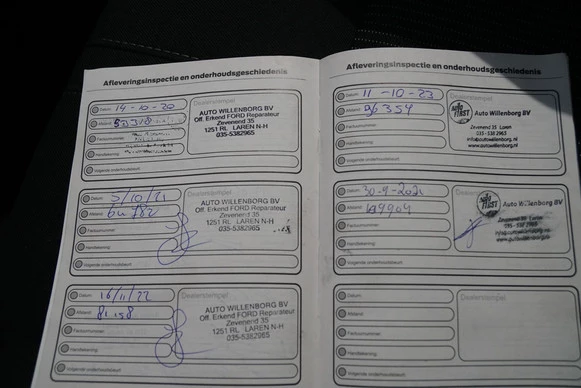 Afleveringsinspectie en onderhoudsgeschiedenis
Datum: 14-10-20
Dealerstempel
Afstand:
Factuurnummer:
Handtekening:
Volgende onderhoudsbeurt:
AUTO WILLENBORG BV
Off. Erkend FORD Reparateur
Zevenend 35
1251 RL LAREN N-H
035-5382965
Datum: 5/10/21
Dealerstempel
Afstand:
Factuurnummer:
Handtekening:
Volgende onderhoudsbeurt:
AUTO WILLENBORG BV
Off. Erkend FORD Reparateur
Zevenend 35
1251 RL LAREN N-H
035-5382965
Datum: 16/11/22
Dealerstempel
Afstand:
Factuurnummer:
Handtekening:
Volgende onderhoudsbeurt:
AUTO WILLENBORG BV
Off. Erkend FORD Reparateur
Zevenend 35
1251 RL LAREN N-H
035-5382965
Afleveringsinspectie en onderhoudsgeschiedenis
Datum: 11-10-23
Afstand: 96354
Factuurnummer:
Handtekening:
Volgende onderhoudsbeurt:
Auto Willenborg BV
Zevenend 35 Laren
www.autowillenborg.nl
Datum:
Afstand:
Factuurnummer:
Handtekening:
Volgende onderhoudsbeurt:
Auto Willenborg BV
Datum:
Dealerstempel
Afstand:
Factuurnummer:
Handtekening:
Volgende onderhoudsbeurt: